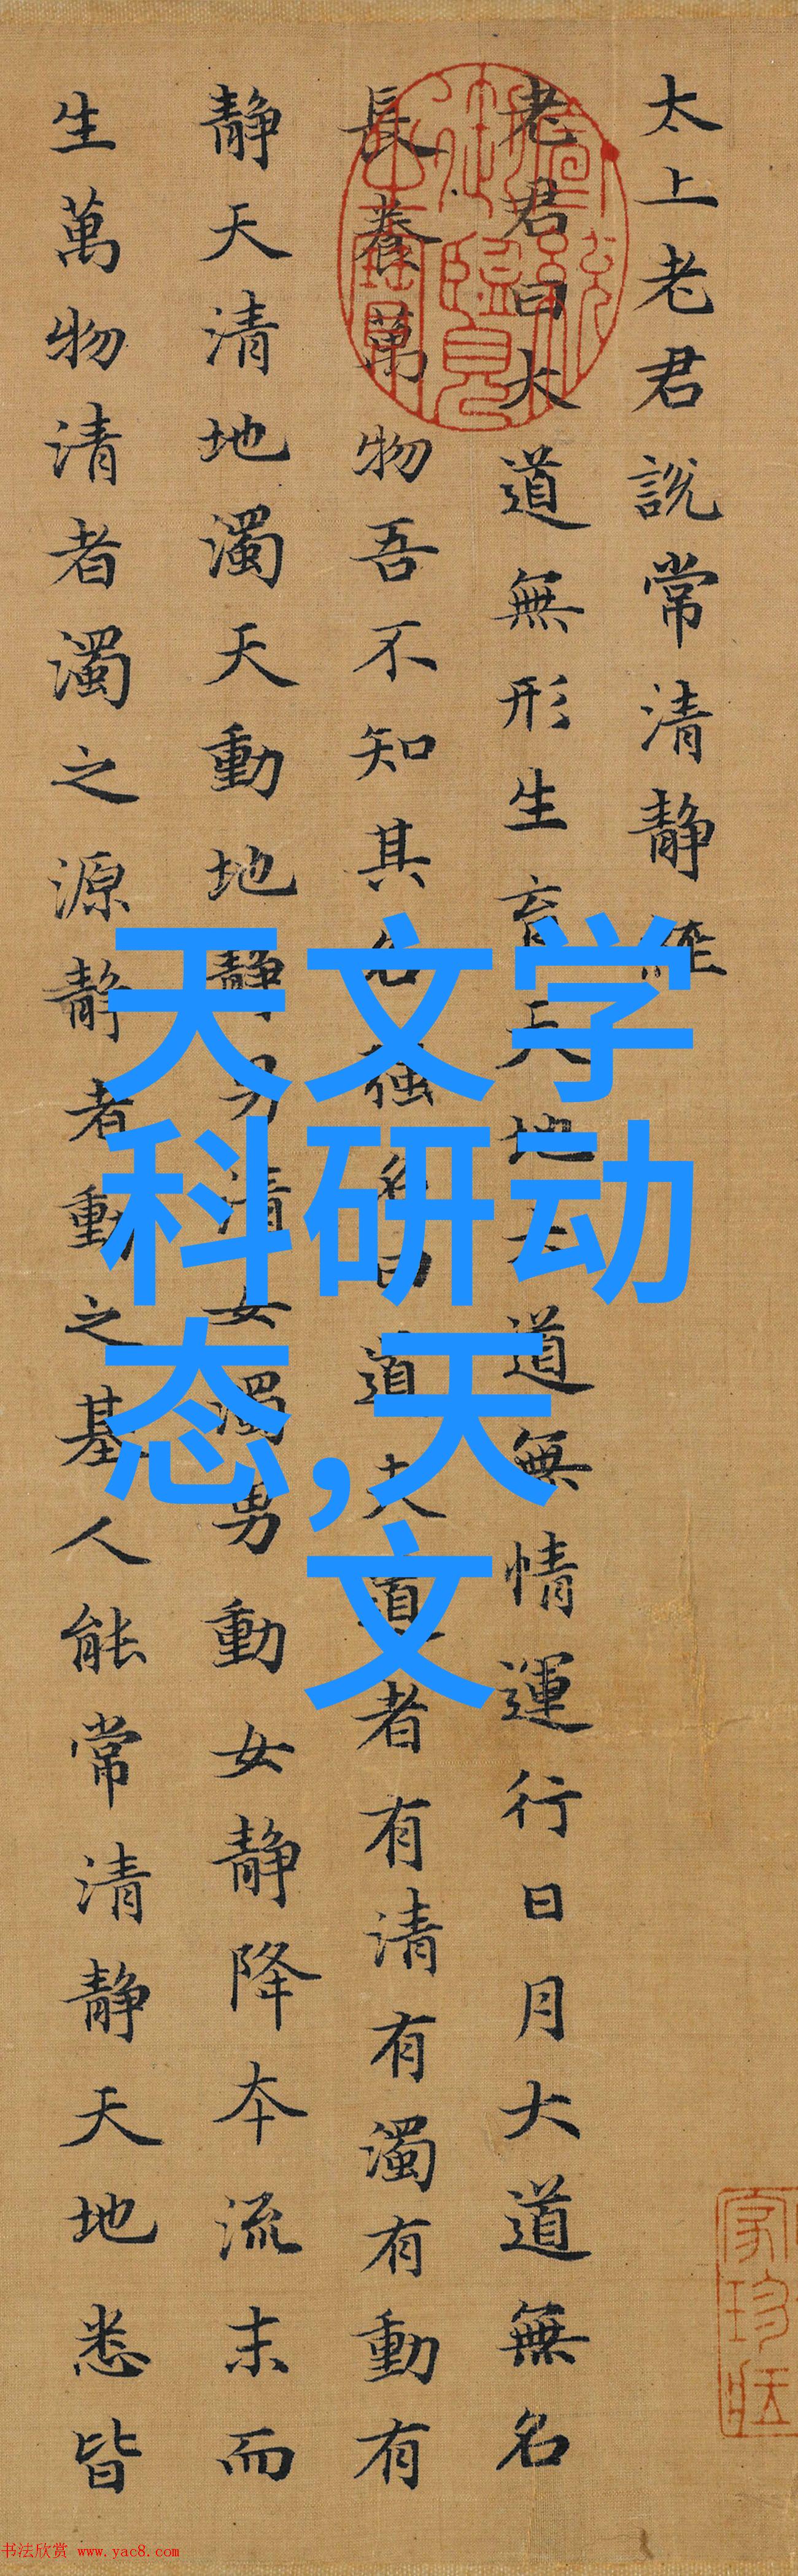 太上老君說常清靜經
老君曰大道無形生育天地大道無情運行日月大道無名
長養萬物吾不知其名強名曰道夫道者有清有濁有動有
靜天清地濁天動地靜男清女濁男動女靜降本流末而
生萬物清者濁之源靜者動之基人能常清靜天地悉皆
天文学
科研动
态,天
文
書法欣赏 www.yac8.com